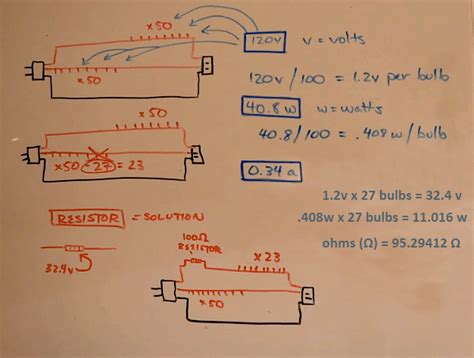 x50
120v v = volts
x50
120v / 100 = 1.2v per bulb
x50
40.8w w = watts
40.8/100 = .408w/bulb
x50 - 27 = 23
0.34a
1.2v x 27 bulbs = 32.4 v
.408w x 27 bulbs = 11.016 w
ohms (Ω) = 95.29412 Ω
RESISTOR = SOLUTION
100Ω
RESISTOR
x23
32.4v
x50